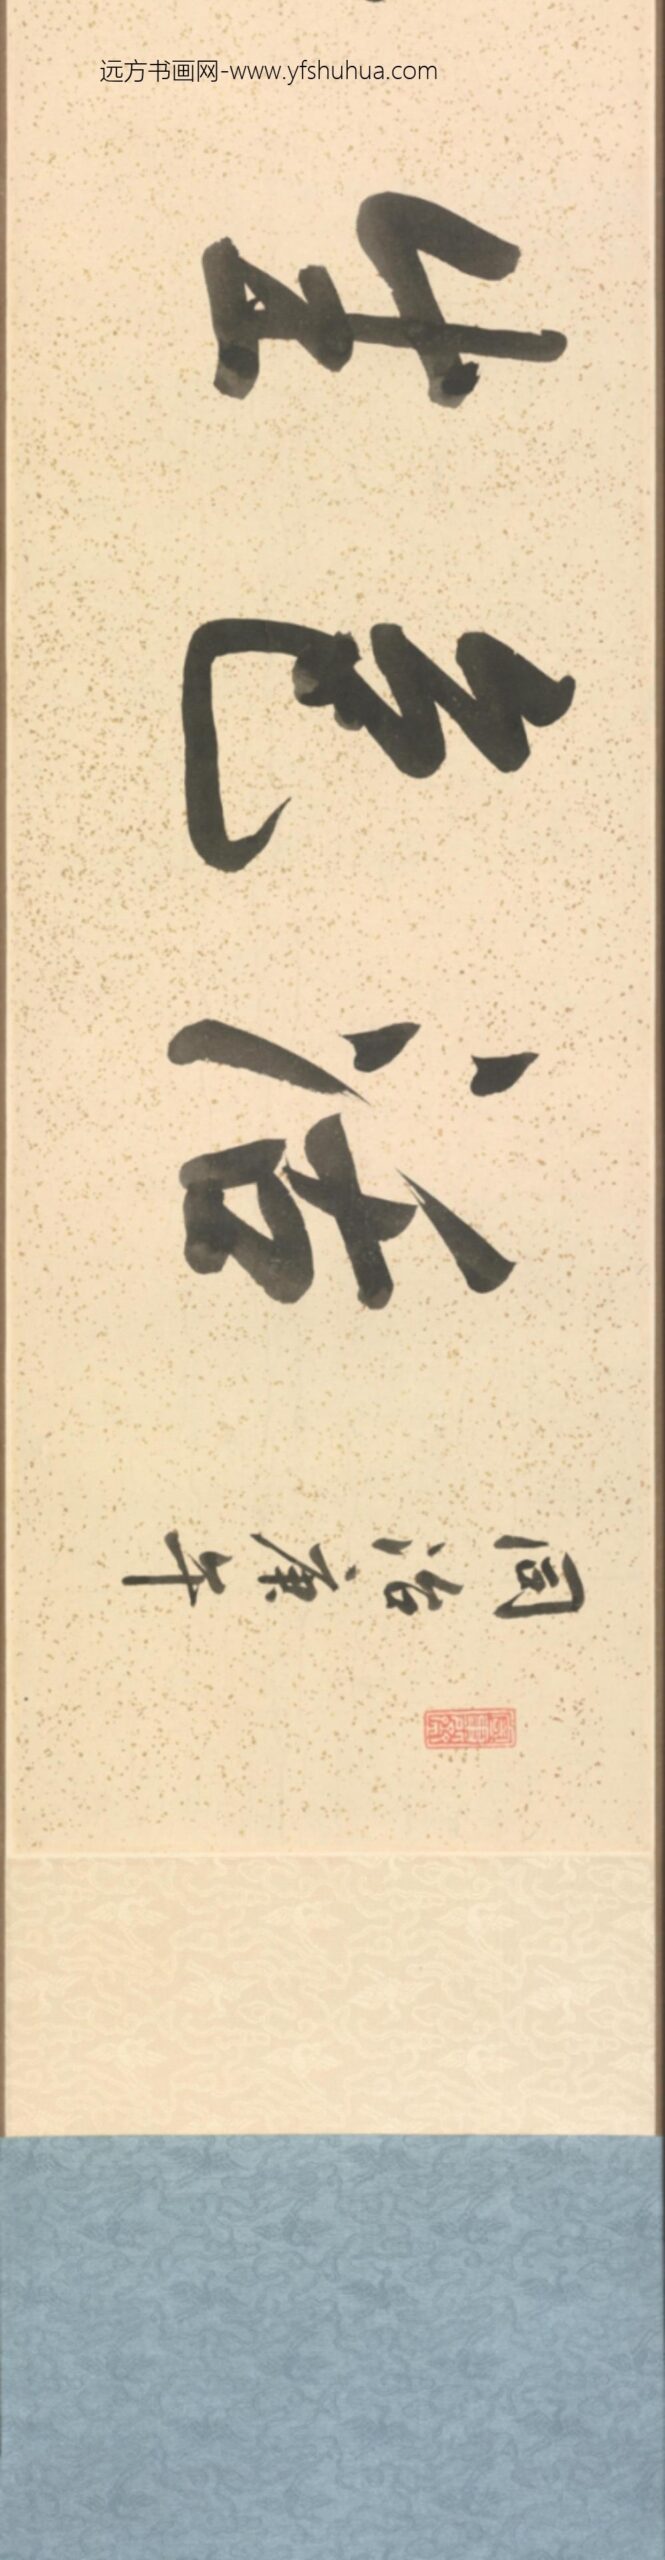 远方书画网-www.yfshuhua.com
同治庚午
活色生